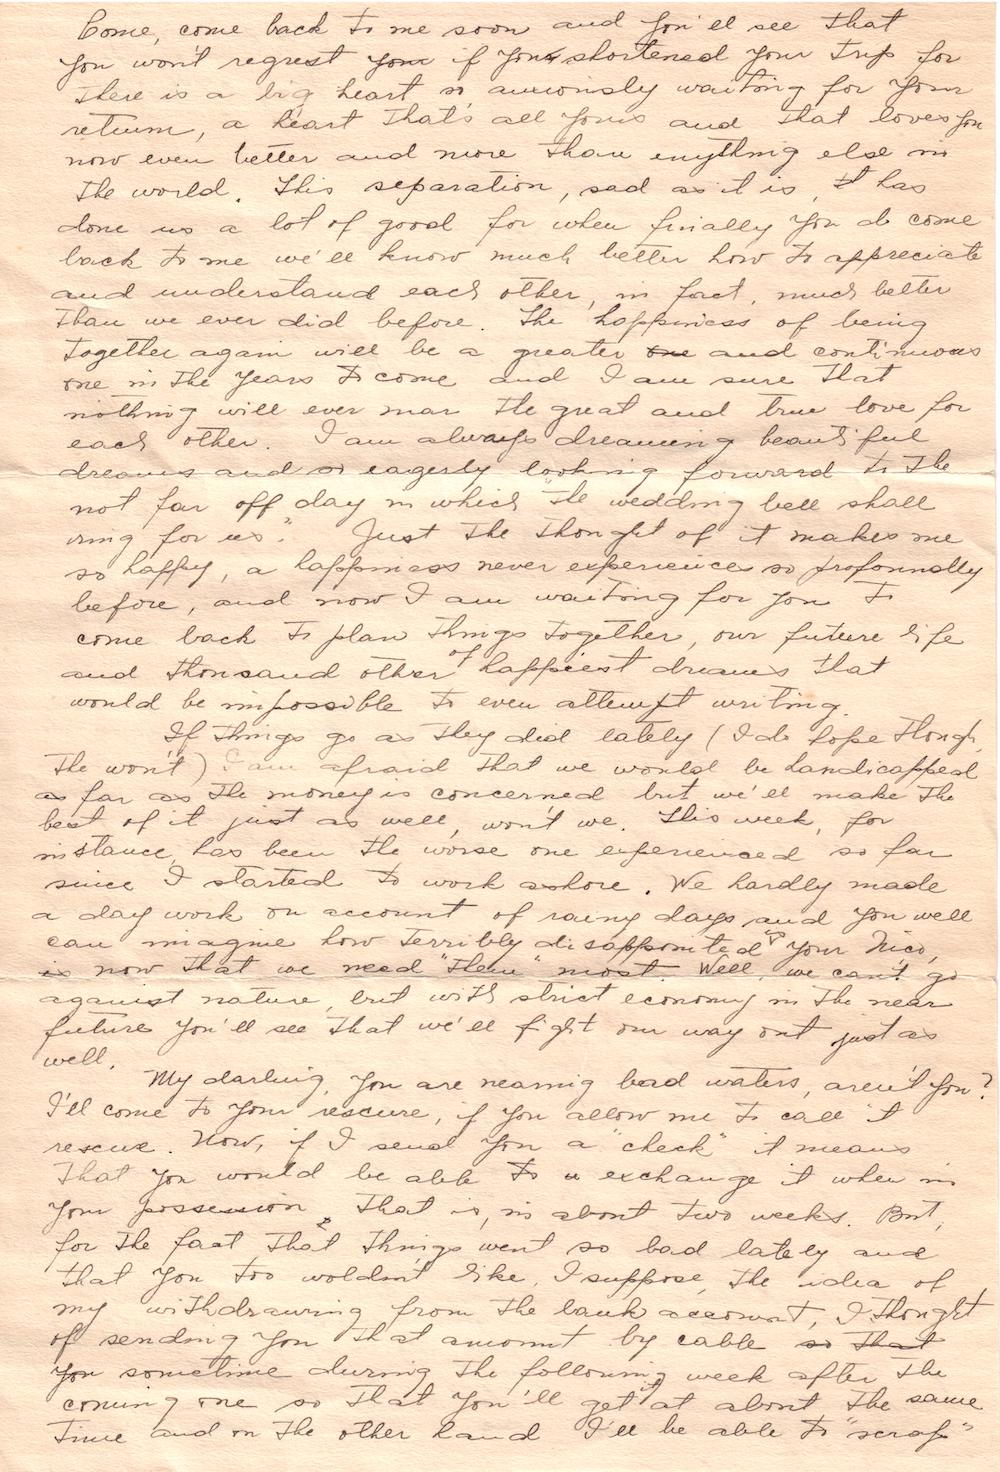 Come, come back to me soon and you'll see that
you won't regrest your if you shortened your trip for
there is a big heart so anxiously waiting for your
return, a heart that's all yours and that loves you
now even better and more than enything else in
the world. This separation, sad as it is, it has
done us a lot of good for when finally you do come
back to me we'll know much better how to appreciate
and understand each other, in fact, much better
than we ever did before. The happiness of being
together again will be a greater one and continuous
one in the years to come and I am sure that
nothing will ever mar the great and true love for
each other. I am always dreaming beautiful
dreams and so eagerly looking forward to the
not far off day in which "the wedding bell shall
ring for us". Just the thought of it makes me
so happy, a happiness never experience so profoundly
before, and now I am waiting for you to
come back to plan things together, our future life
and thousand other of happiest dreams that
would be impossible to even attempt writing.
If things go as they did lately (I do hope though,
the won't) I am afraid that we would be handicapped
as far as the money is concerned but we'll make the
best of it just as well, won't we. This week, for
instance, has been the worse one experienced so far
since I started to work ashore. We hardly made
a day work on account of rainy days and you well
can imagine how terribly disappointed is your Nico,
is now that we need "them" most. Well, we can't go
against nature, but with strict economy in the near
future you'll see that we'll fight our way out just as
well.
My darling, you are nearing bad waters, aren't you?
I'll come to your rescure, if you allow me to call it
rescue. Now, if I send you a "check" it means
that you would be able to exchange it when in
your possession, that is, in about two weeks. But,
for the fact that things went so bad lately and
that you too woldn't like, I suppose, the idea of
my withdrawing from the bank account, I thought
of sending you that amount by cable so that
you sometime during the following week after the
coming one so that you'll get it at about the same
time and on the other hand I'll be able to "scrap"